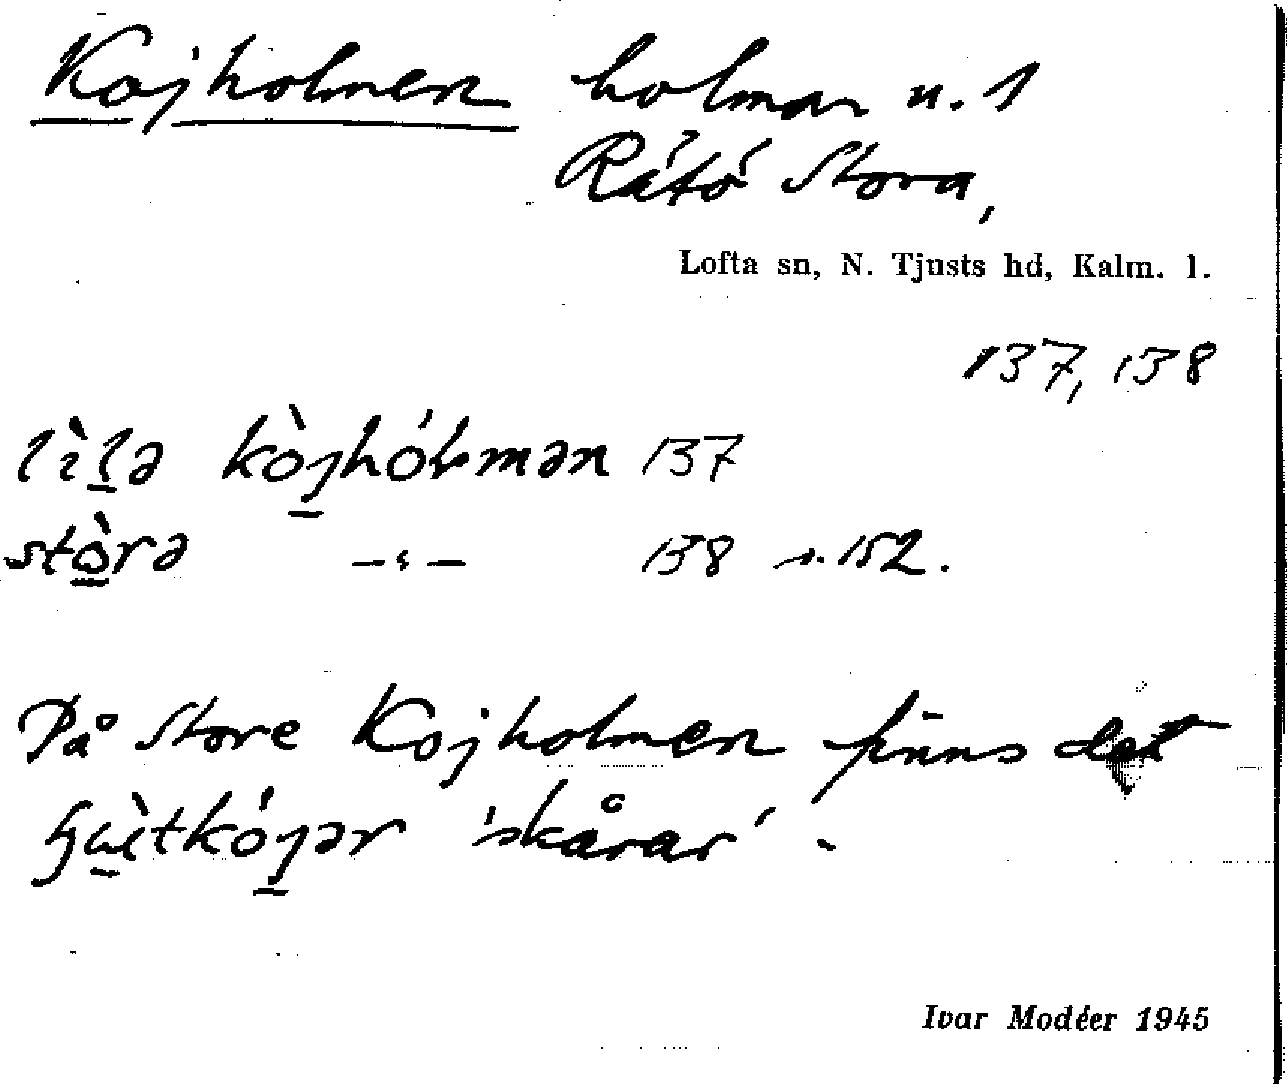 Kojholmen holmar u. 1
Råtö Stora,
Lofta sn, N. Tjusts hd, Kalm. l.
137, 138
lìlə kòjhólmən 137
stòrə —"— 138 s. 152.
På Store Kojholmen finns det
'skårar'.
Ivar Modéer 1945